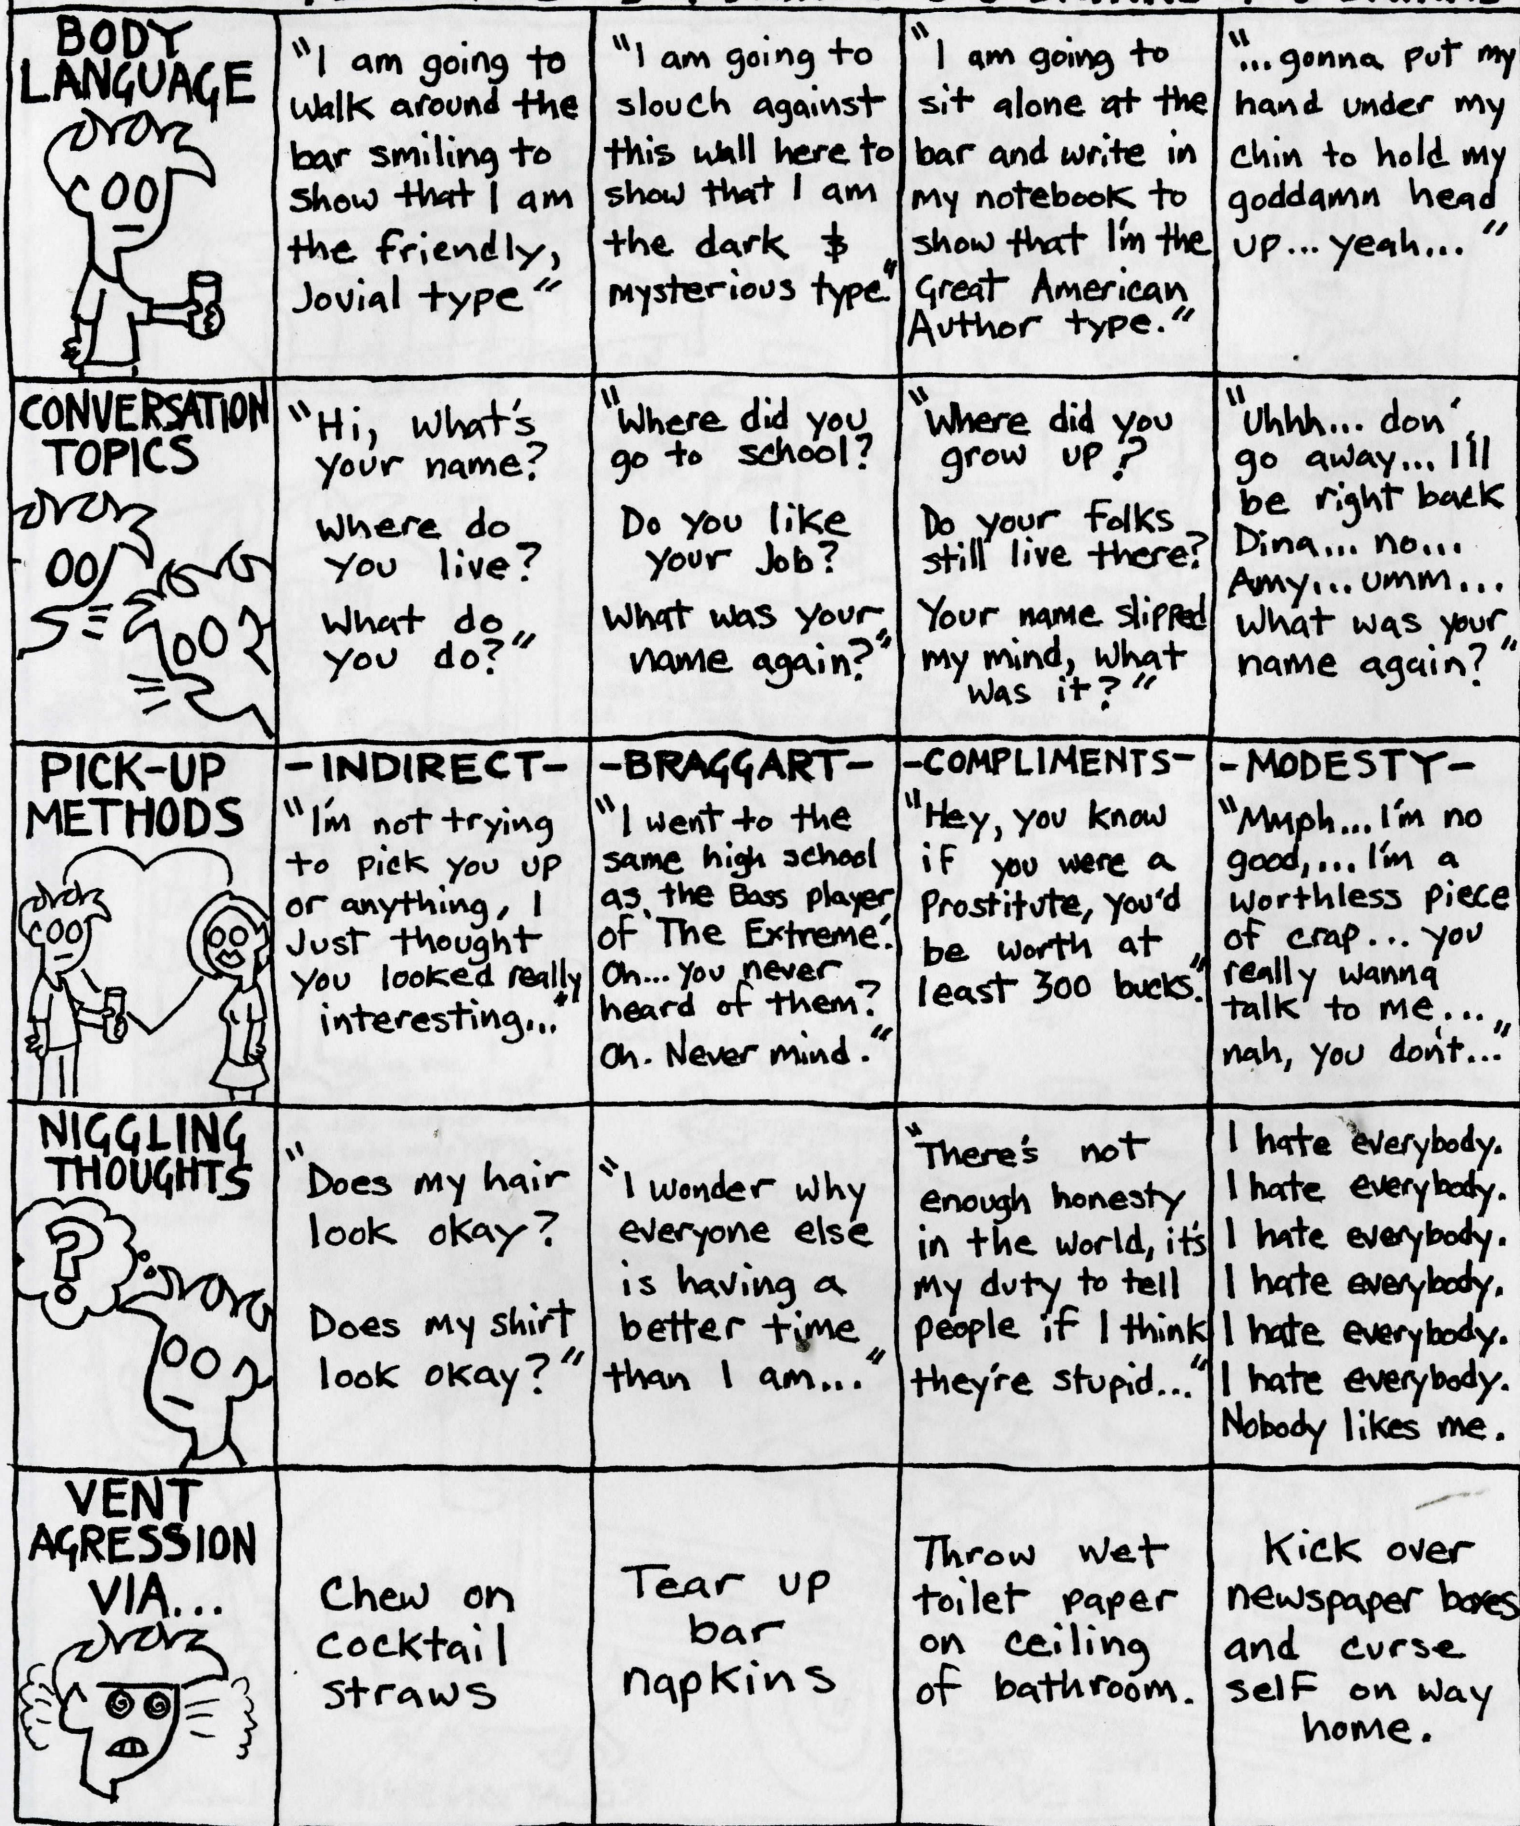 BODY
LANGUAGE
"I am going to
walk around the
bar smiling to
show that I am
the friendly,
Jovial type"
"I am going to
slouch against
this wall here to
show that I am
the dark &
mysterious type"
"I am going to
sit alone at the
bar and write in
my notebook to
show that I'm the
Great American
Author type."
"...gonna put my
hand under my
chin to hold my
goddamn head
up... yeah..."
CONVERSATION
TOPICS
"Hi, what's
your name?
Where do
you live?
What do
you do?"
"Where did you
go to school?
Do you like
your Job?
What was your
name again?"
"Where did you
grow up?
Do your folks
still live there?
Your name slipped
my mind, what
was it?"
"Uhhh... don'
go away... I'll
be right back
Dina... no...
Amy... umm...
What was your
name again?"
PICK-UP
METHODS
-INDIRECT-
"I'm not trying
to pick you up
or anything, I
Just thought
you looked really
interesting..."
-BRAGGART-
"I went to the
same high school
as the Bass player
of 'The Extreme.'
Oh... you never
heard of them?
Oh. Never mind."
-COMPLIMENTS-
"Hey, you know
if you were a
prostitute, you'd
be worth at
least 300 bucks."
-MODESTY-
"Mmph... I'm no
good,... I'm a
worthless piece
of crap... you
really wanna
talk to me...
nah, you don't..."
NIGGLING
THOUGHTS
?
"Does my hair
look okay?
Does my shirt
look okay?"
"I wonder why
everyone else
is having a
better time
than I am..."
"There's not
enough honesty
in the world, it's
my duty to tell
people if I think
they're stupid..."
I hate everybody.
I hate everybody.
I hate everybody.
I hate everybody.
I hate everybody.
I hate everybody.
Nobody likes me.
VENT
AGRESSION
VIA...
Chew on
cocktail
straws
Tear up
bar
napkins
Throw wet
toilet paper
on ceiling
of bathroom.
Kick over
newspaper boxes
and curse
self on way
home.